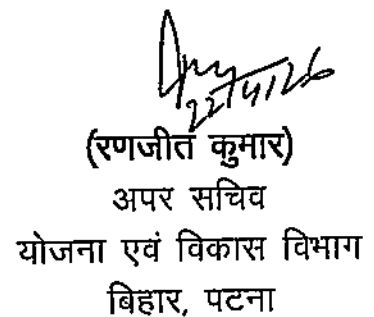 22/4/26
(रणजीत कुमार)
अपर सचिव
योजना एवं विकास विभाग
बिहार, पटना